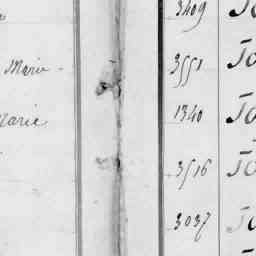 3409 To
Marie 3551 To
Marie 1340 To
3516 To
3037 To